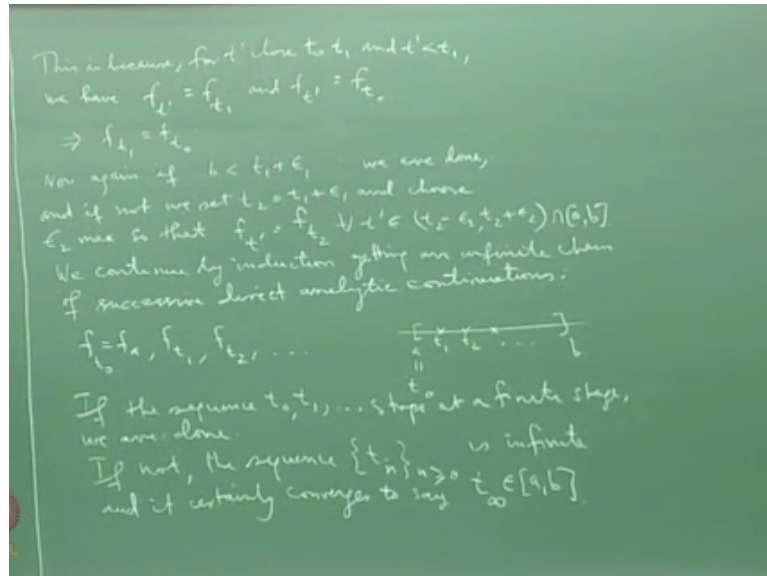 This is because, for t' close to t₁ and t' < t₁,
we have f_t' = f_t₁ and f_t' = f_t₀
⇒ f_t₁ = f_t₀
Now again if b < t₁ + ε₁ we are done,
and if not we set t₂ = t₁ + ε₁ and choose
ε₂ max so that f_t' = f_t₂ ∀ t' ∈ (t₂ - ε₂, t₂ + ε₂) ∩ [a,b]
We continue by induction getting an infinite chain
of successive direct analytic continuations:
f_t₀ = f_a, f_t₁, f_t₂, ....
[ t₁ t₂ .... ]
a b
||
t₀
If the sequence t₀, t₁, ... stops at a finite stage,
we are done.
If not, the sequence {t_n}_n≥0 is infinite
and it certainly converges to say t_∞ ∈ [a,b].